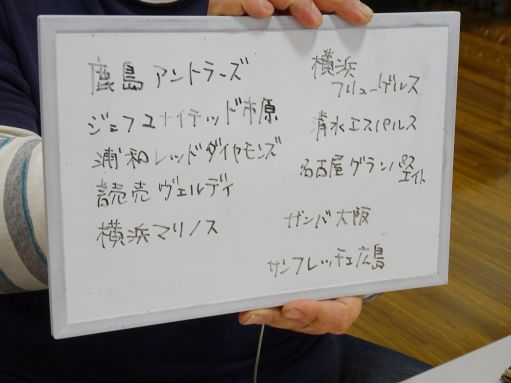 鹿島アントラーズ
ジェフユナイテッド市原
浦和レッドダイヤモンズ
読売ヴェルディ
横浜マリノス
横浜
フリューゲルス
清水エスパルス
名古屋グランパス
エイト
ガンバ大阪
サンフレッチェ広島